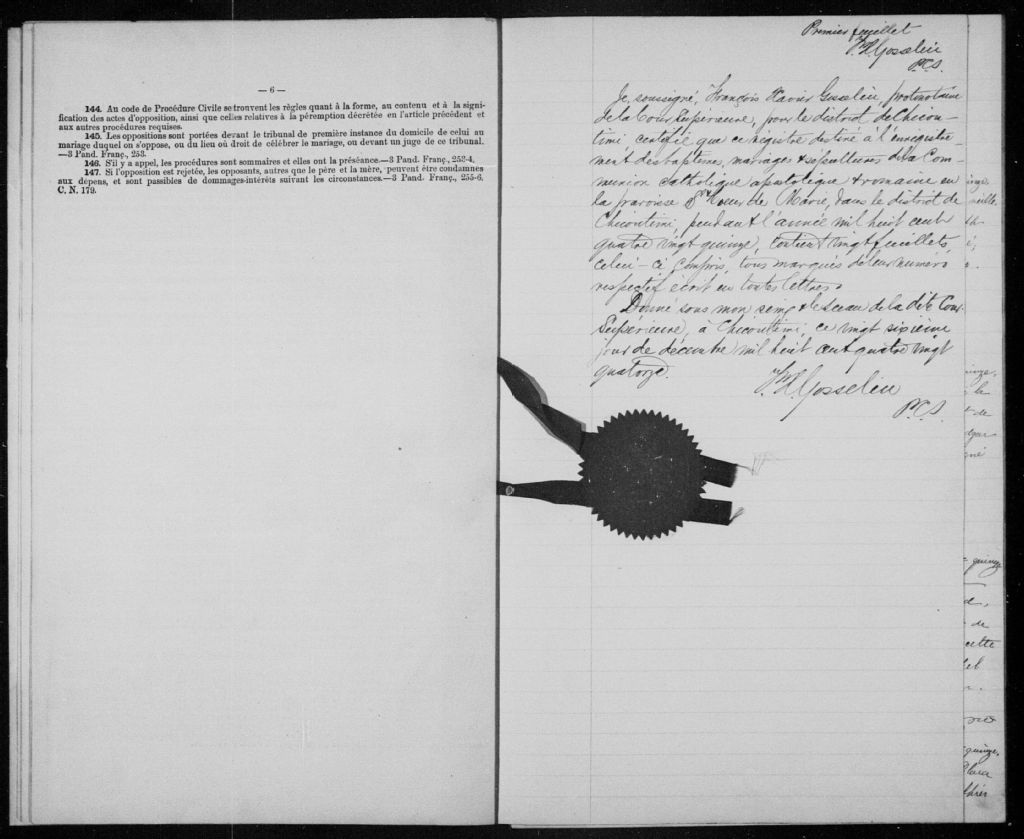 — 6 —
144. Au code de Procédure Civile se trouvent les règles quant à la forme, au contenu et à la signi-
fication des actes d'opposition, ainsi que celles relatives à la péremption décrétée en l'article précédent et
aux autres procédures requises.
145. Les oppositions sont portées devant le tribunal de première instance du domicile de celui au
mariage duquel on s'oppose, ou du lieu où droit de célébrer le mariage, ou devant un juge de ce tribunal.
—3 Pand. Franç., 253.
146. S'il y a appel, les procédures sont sommaires et elles ont la préséance.—3 Pand. Franç., 253-4.
147. Si l'opposition est rejetée, les opposants, autres que le père et la mère, peuvent être condamnés
aux dépens, et sont passibles de dommages-intérêts suivant les circonstances.—3 Pand. Franç., 255-6.
C. N. 179.
Premier feuillet
F. X. Gosselin
P.C.S.
Je, soussigné, François Xavier Gosselin, protonotaire
de la Cour Supérieure, pour le district de Chicou-
timi, certifie que ce registre destiné à l'enregistre-
ment des baptêmes, mariages & sépultures de la Com-
munion Catholique apostolique & romaine en
la paroisse St Coeur de Marie, dans le district de
Chicoutimi, pendant l'année mil huit cent
quatre vingt quinze, contient vingt feuillets,
celui-ci compris, tous marqués de leur numéro
respectif écrit en toutes lettres.
Donné sous mon seing & le sceau de la dite Cour
Supérieure, à Chicoutimi, ce vingt sixième
jour de décembre mil huit cent quatre vingt
quatorze.
F. X. Gosselin
P.C.S.
quinze
de
cette
quinze,